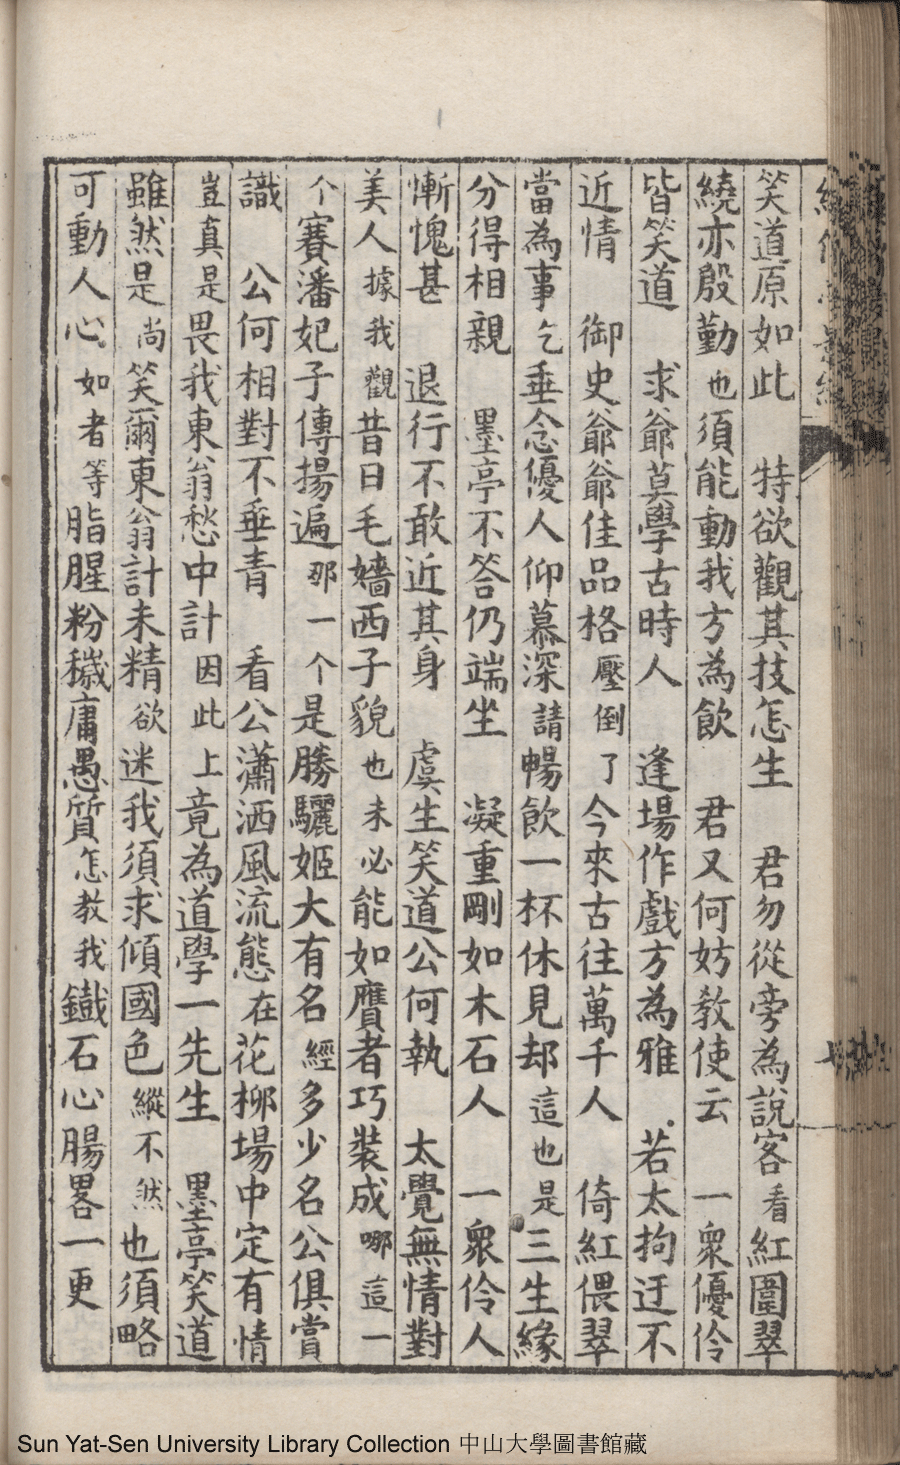 笑道原如此　特欲觀其技怎生　君勿從旁為說客看紅圍翠
繞亦殷勤也須能動我方為飲　君又何妨教使云　一衆優伶
皆笑道　求爺莫學古時人　逢場作戲方為雅　若太拘迂不
近情　御史爺爺佳品格壓倒了今來古往萬千人　倚紅偎翠
當為事乞垂念優人仰慕深請暢飲一杯休見却這也是三生緣
分得相親　墨亭不答仍端坐　凝重剛如木石人　一衆伶人
慚愧甚　退行不敢近其身　虞生笑道公何執　太覺無情對
美人據我觀昔日毛嬙西子貌也未必能如贋者巧裝成哪這一
个賽潘妃子傳揚遍那一个是勝驪姬大有名經多少名公俱賞
識　公何相對不垂青　看公瀟洒風流態在花柳場中定有情
豈真是畏我東翁愁中計因此上竟為道學一先生　墨亭笑道
雖然是尚笑爾東翁計未精欲迷我須求傾國色縱不然也須略
可動人心如者等脂腥粉穢庸愚質怎教我鐵石心腸畧一更
Sun Yat-Sen University Library Collection 中山大學圖書館藏